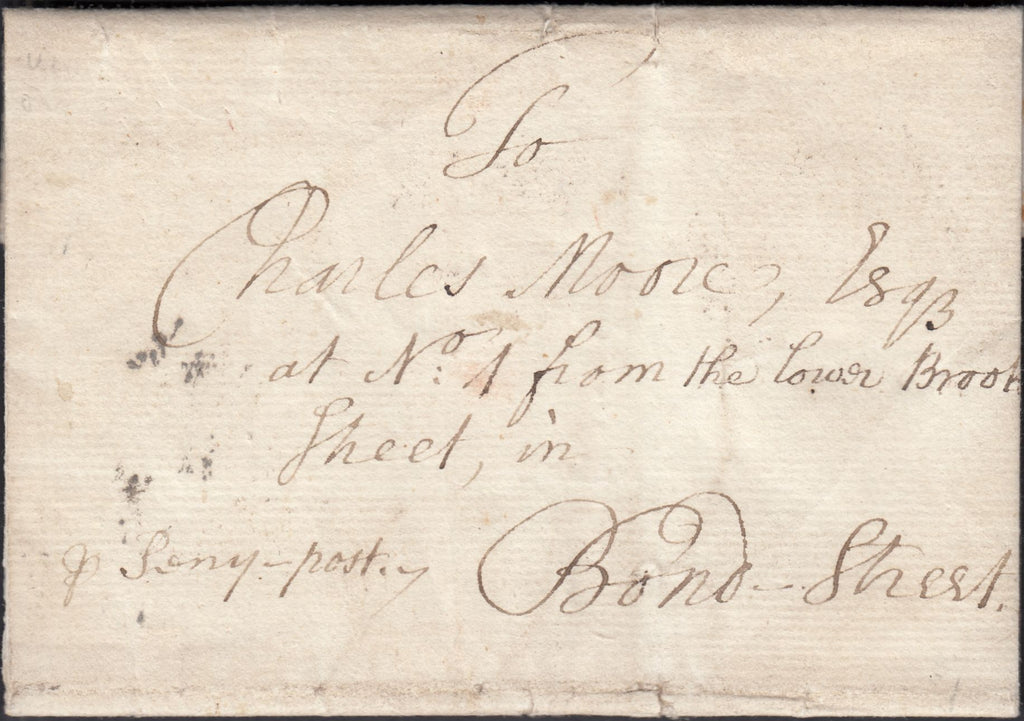 To
Charles Moore, Esqr
at No: 1 from the lower Brook
Street, in
Bond-Street.
p Peny-post.